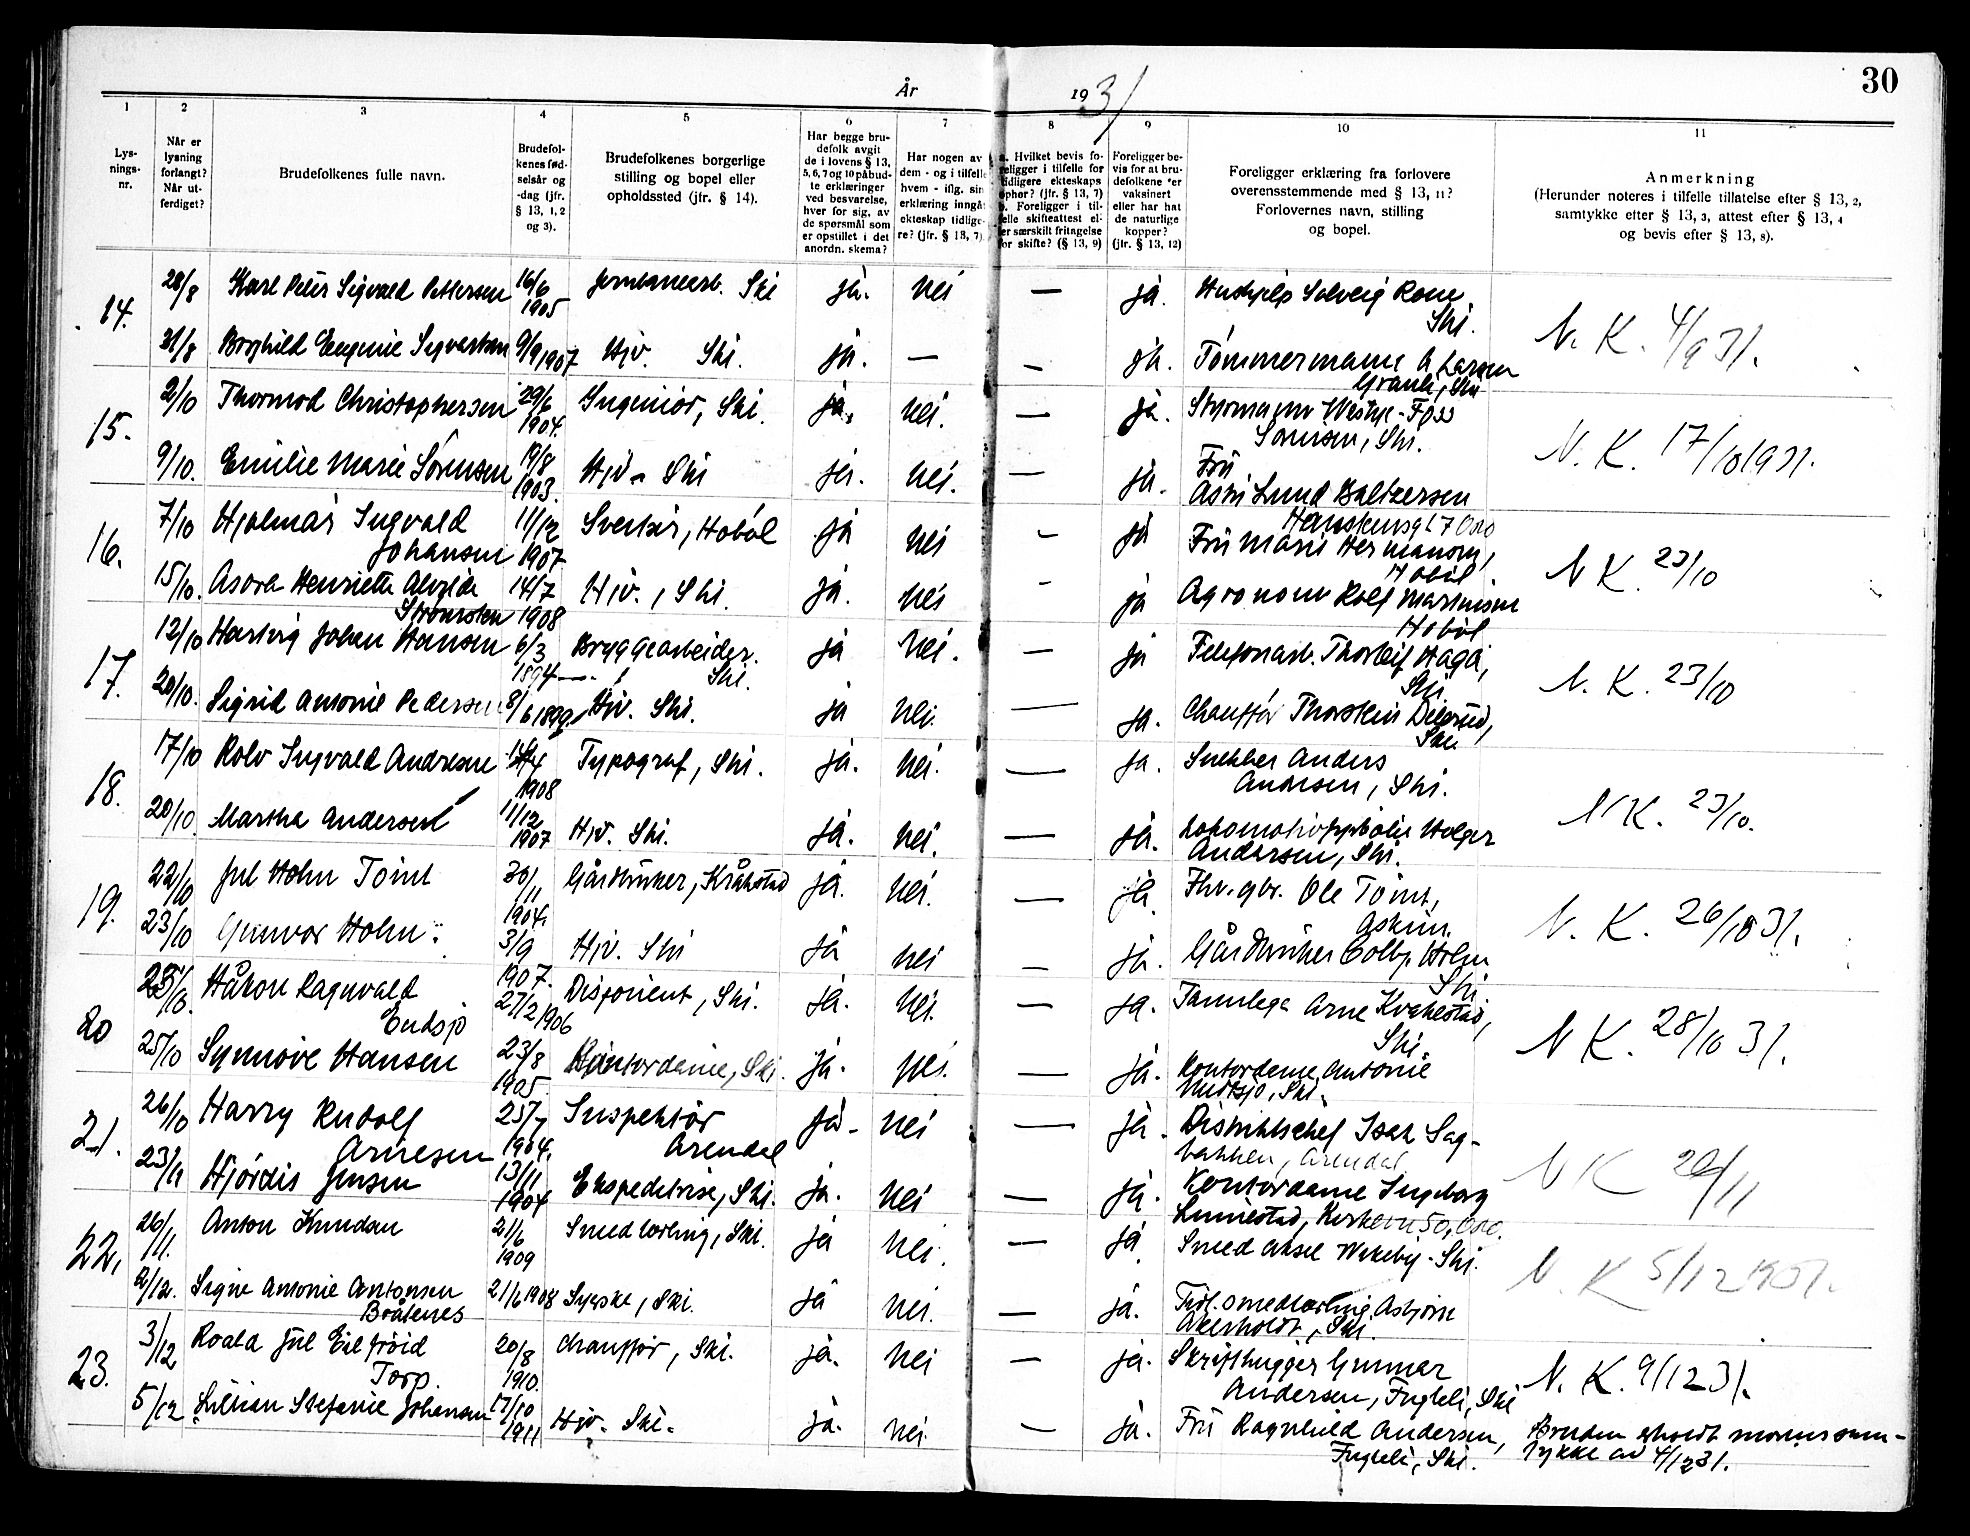 30
År 1931
1 2 3 4 5 6 7 8 9 10 11
Lys-
nings-
nr.
Når er
lysning
forlangt?
Når ut-
ferdiget?
Brudefolkenes fulle navn.
Brudefol-
kenes fød-
selsår og
-dag (jfr.
§ 13, 1, 2
og 3).
Brudefolkenes borgerlige
stilling og bopel eller
opholdssted (jfr. § 14).
Har begge bru-
defolk avgit
de i lovens § 13,
5, 6, 7 og 10 påbud-
te erklæringer
ved besvarelse,
hver for sig, av
de spørsmål som
er opstillet i det
anordn. skema?
Har nogen av
dem - og i tilfelle
hvem - iflg. sin
erklæring inngåt
ekteskap tidlige-
re? (jfr. § 13, 7)
a. Hvilket bevis fo-
religger i tilfelle for
tidligere ekteskaps
ophør? (jfr. § 13, 7)
b. Foreligger i til-
felle skifteattest el-
er særskilt fritagelse
for skifte? (§ 13, 9)
Foreligger be-
vis for at bru-
defolkene er
vaksinert
eller har hat
de naturlige
kopper?
(jfr. § 13, 12)
Foreligger erklæring fra forlovere
overensstemmende med § 13, 11?
Forlovernes navn, stilling
og bopel.
Anmerkning
(Herunder noteres i tilfelle tillatelse efter § 13, 2,
samtykke efter § 13, 3, attest efter § 13, 4
og bevis efter § 13, 8).
14. 28/8 Karl Peter Sigvald Pettersen 16/6 1905 Jernbanearb. Ski ja. nei — ja. Hushjelp Solveig
Ski.
N. K. 4/9 31.
31/8 Borghild Eugenie 9/9 1907 Hjv. Ski. ja. — — ja. Tømmermann A Larsen
Ski
15. 2/10 Thormod Christophersen 29/6 1904. Ingeniør, Ski. ja. nei. — ja. Styrmann
Sørensen, Ski.
N. K. 17/10 1931.
9/10. Emilie Marie Sørensen 19/8 1903. Hjv. Ski ja. nei. — ja. Fru
Astri Lund Baltzersen
17 Oslo
16. 7/10 Hjalmar Ingvald
Johansen 11/12 1907 Hobøl ja nei - ja Fru Marie Hermansen,
Hobøl.
N K. 23/10
15/10. Asora Henriette Alvilde
14/7 1908 Hjv., Ski. ja. nei - ja Agronom Rolf Martinsen
Hobøl
17. 12/10 Hartvig Johan Hansen 6/3 1894 Bryggearbeider.
Ski. ja nei. — ja Telefonarb. Thorleif Haga,
Ski.
N. K. 23/10
20/10. Sigrid Antonie Pedersen 8/6 1899 Hjv. Ski. ja nei. — ja. Chauffør Thorstein
Ski.
18. 17/10 Rolv Ingvald Andresen 1908 Typograf, Ski. ja. nei. — ja. Snekker Anders
Andresen, Ski.
N K. 23/10.
20/10. Martha Andersen 11/12 1907 Hjv. Ski. ja. nei. — ja. Holger
Andersen, Ski.
19. 22/10 Jul Holm Tomt 30/11 1904. Gårdbruker, Kråkstad ja. nei. — ja. Fhv. gbr. Ole Tomt,
Askim.
N. K. 26/10 31.
23/10 Gunvor Holm. 3/9 1907. Hjv. Ski ja nei — ja. Gårdbruker Holm
Ski
20 /10. Håkon Ragnvald
Endsjø 27/2 1906 Disponent, Ski. ja. nei. — ja. Tannlege Arne Kråkestad,
Ski
N K. 28/10 31.
25/10 Synnøve Hansen 23/8 1905. Kontordame, Ski. ja. nei. — ja. Kontordame Antonie
Ski.
21. 26/10 Harry Rudolf
Arnesen 25/7 1904. Inspektør
Arendal ja - nei — ja. Distriktschef Isak Sag-
bakken, Arendal
N K 20/11
23/11 Hjørdis Jensen 13/11 1904 Ekspeditrise, Ski. ja. nei — ja. Kontordame Ingeborg
50, Oslo.
22. 26/11. Anton Knudsen 21/6 1909 Smedlærling, Ski. ja nei. — ja Smed Aksel Wakeby - Ski.
N. K 5/12 1931.
2/12. Signe Antonie Antonsen
Bråtenes 21/6 1908 Syerske, Ski. ja nei. — ja. Smedlærling Asbjørn
Akerholdt, Ski.
23. 3/12 Roald Jul Eilfrøid
Torp. 20/8 1910. Chauffør, Ski. ja. nei — ja. Skrifthugger Gunnar
Andersen, Fugleli, Ski
N. K. 9/12 31.
5/12 Lillian Stefanie Johansen 17/10 1911 Hjv. Ski. ja. nei. — ja. Fru Ragnhild Andersen,
Fugleli, Ski.
Bruden erholdt morens sam-
tykke av 4/12 31.